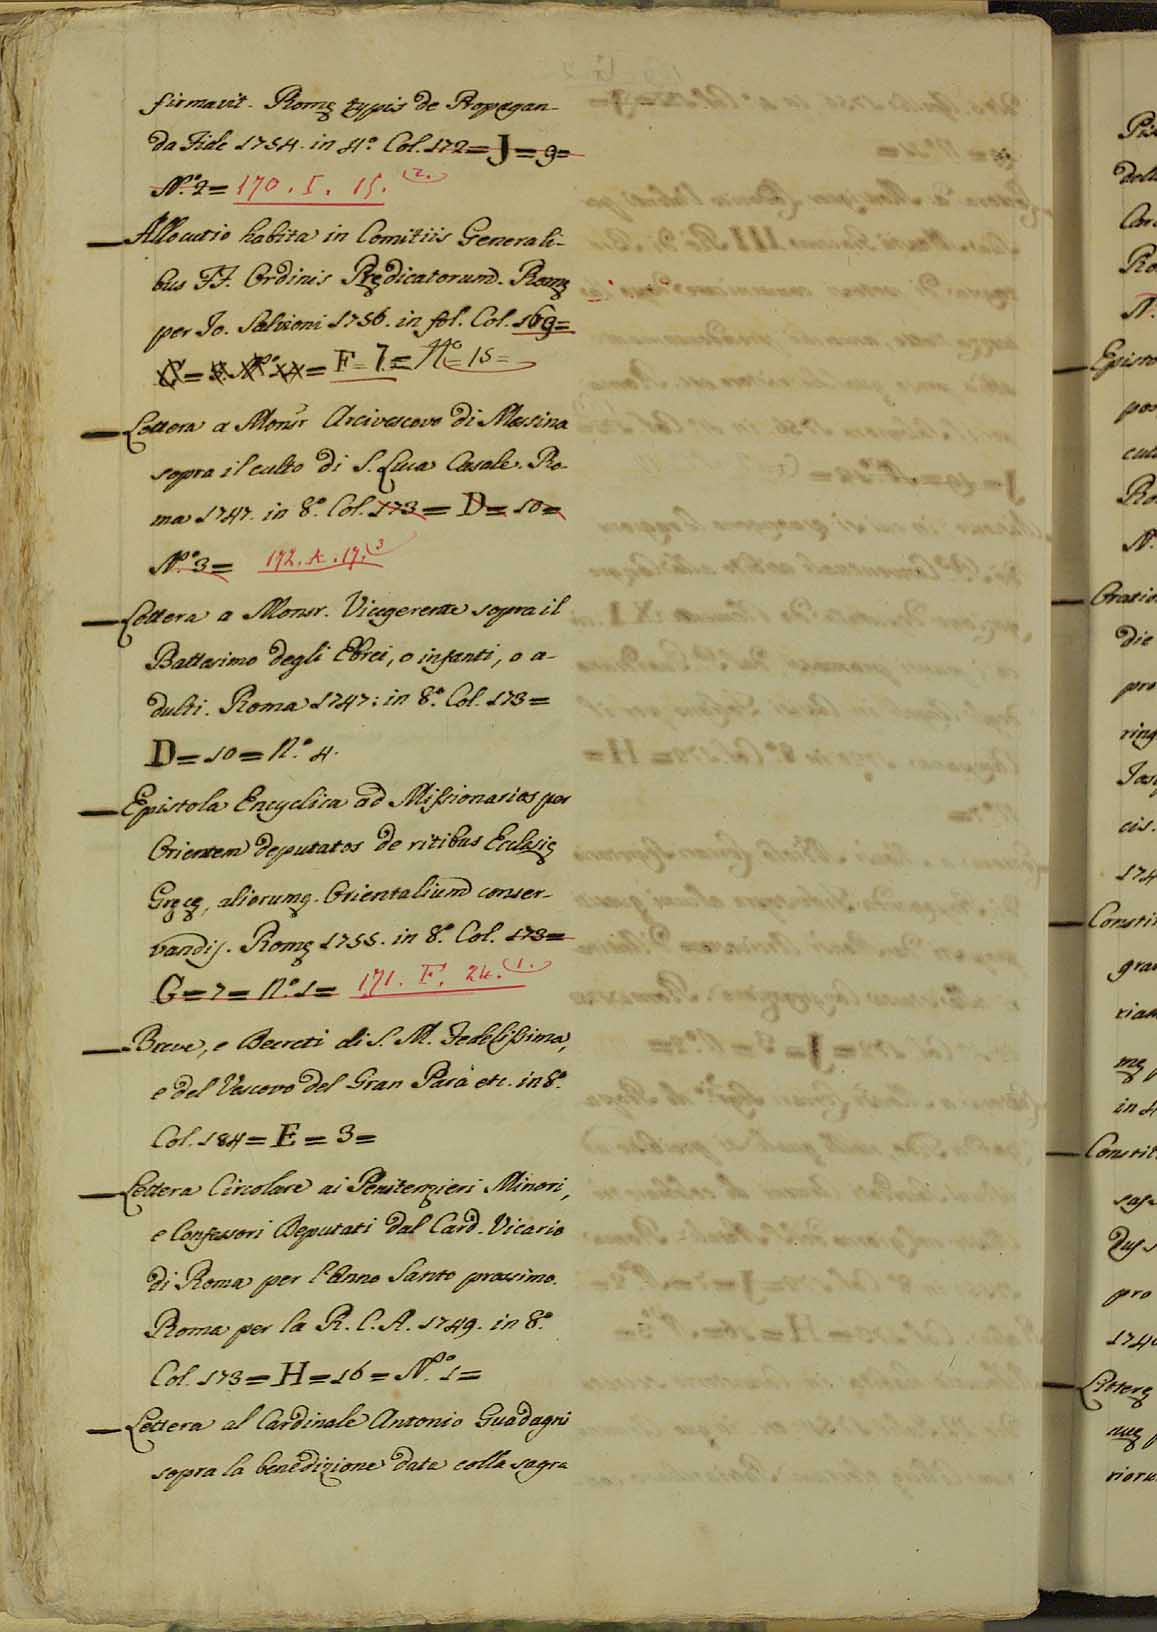 firmavit. Romę typis de Propagan-
da Fide 1754. in 4.º Col. 172 = J = 9 =
N.º 2 = 170. I. 15. (2.
— Allocutio habita in Comitiis Generali-
bus FF. Ordinis Prędicatorum. Romę
per Jo. Salvioni 1756. in fol. Col. 169 =
= F = 7 = Nº = 15 =
— Lettera a Monsr Arcivescovo di Messina
sopra il culto di S. Luca Casale. Ro-
ma 1747. in 8.º Col. 173 = D = 10 =
N.º 3 = 192. A. 17. (3
— Lettera a Monsr. Vicegerente sopra il
Battesimo degli Ebrei, o infanti, o a-
dulti. Roma 1747: in 8.º Col. 173 =
D = 10 = N.º 4.
— Epistola Encyclica ad Missionarios per
Orientem deputatos de ritibus Ecclesię
Gręcę, aliorumq. Orientalium conser-
vandis. Romę 1755. in 8.º Col. 173 =
G = 7 = N.º 1 = 171. F. 24. (1.
— Breve, e Decreti di S. M. Fedelissima,
e del Vescovo del Gran Parà etc. in 8.º
Col. 184 = E = 3 =
— Lettera Circolare ai Penitenzieri Minori,
e Confessori Deputati dal Card. Vicario
di Roma per l'Anno Santo prossimo.
Roma per la R. C. A. 1749. in 8.º
Col. 173 = H = 16 = N.º 1 =
— Lettera al Cardinale Antonio Guadagni
sopra la benedizione data colla sagra